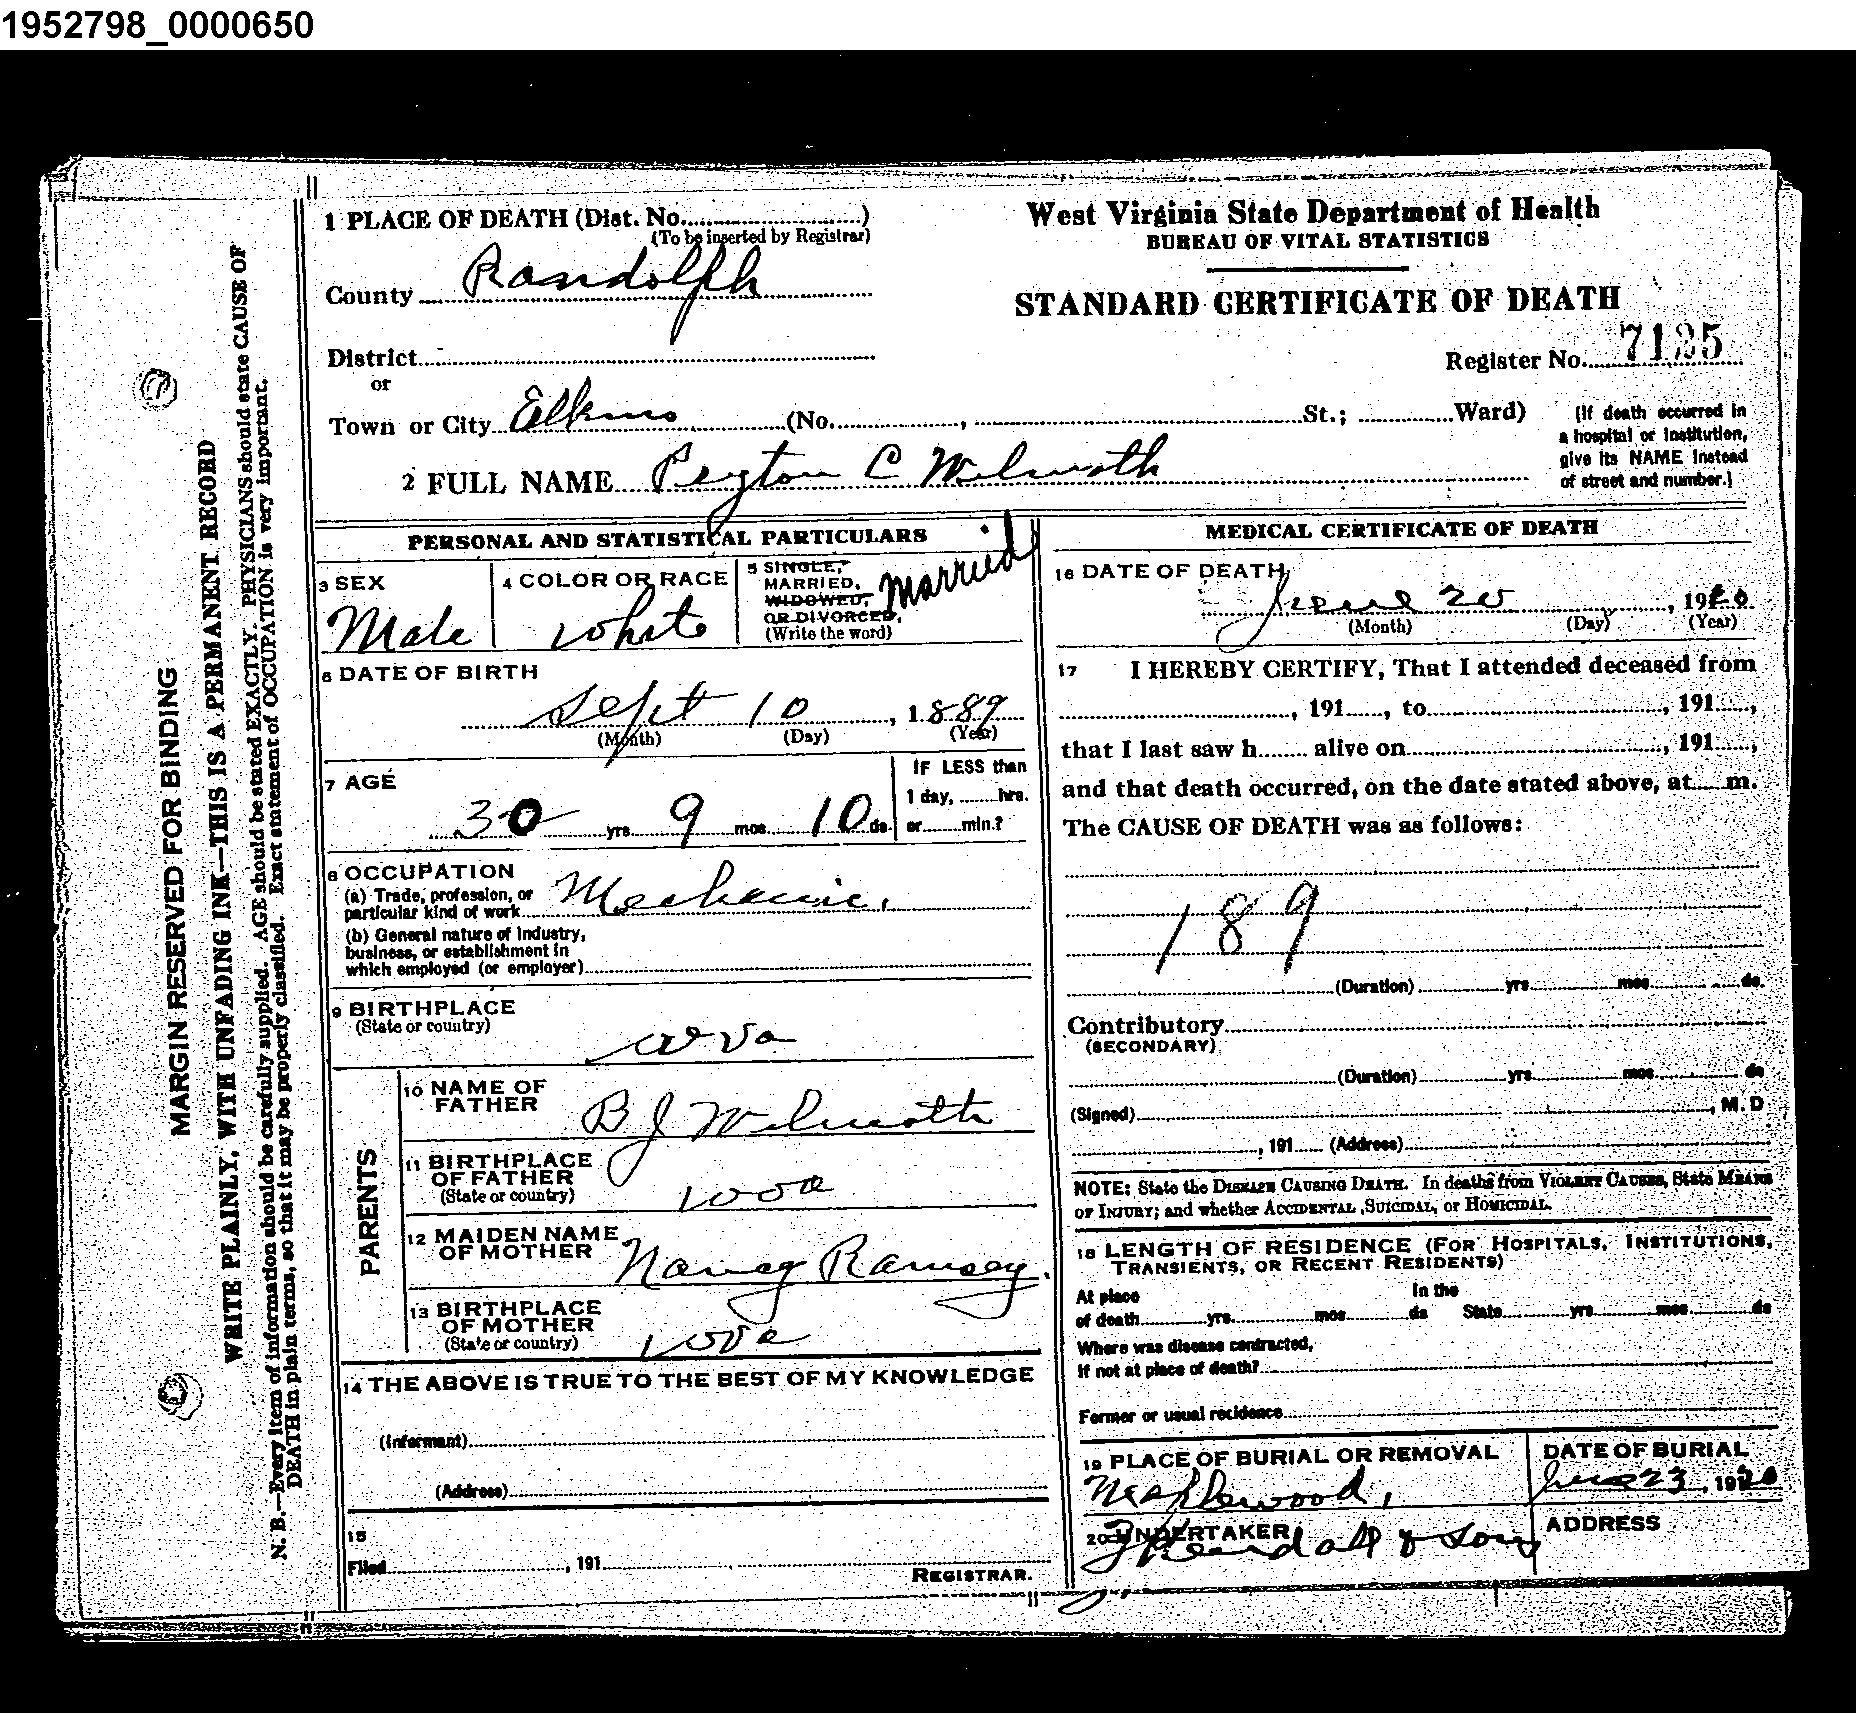 1952798_0000650
MARGIN RESERVED FOR BINDING
WRITE PLAINLY, WITH UNFADING INK—THIS IS A PERMANENT RECORD
N. B.—Every item of information should be carefully supplied. AGE should be stated EXACTLY. PHYSICIANS should state CAUSE OF
DEATH in plain terms, so that it may be properly classified. Exact statement of OCCUPATION is very important.
1 PLACE OF DEATH (Dist. No.)
(To be inserted by Registrar)
County Randolph
District
or
Town or City Elkins (No. , St.; Ward)
West Virginia State Department of Health
BUREAU OF VITAL STATISTICS
STANDARD CERTIFICATE OF DEATH
Register No. 7125
(If death occurred in
a hospital or institution,
give its NAME instead
of street and number.)
2 FULL NAME Peyton C Wilmoth
PERSONAL AND STATISTICAL PARTICULARS
3 SEX
Male
4 COLOR OR RACE
White
5 SINGLE,
MARRIED,
WIDOWED,
OR DIVORCED,
(Write the word)
Married
6 DATE OF BIRTH
Sept 10, 1889
(Month) (Day) (Year)
7 AGE
30 yrs. 9 mos. 10 ds.
IF LESS than
1 day, hrs.
or min.?
8 OCCUPATION
(a) Trade, profession, or
particular kind of work Mechanic.
(b) General nature of Industry,
business, or establishment in
which employed (or employer)
9 BIRTHPLACE
(State or country)
W Va
PARENTS
10 NAME OF
FATHER
B J Wilmoth
11 BIRTHPLACE
OF FATHER
(State or country)
W Va
12 MAIDEN NAME
OF MOTHER
Nancy Ramsey.
13 BIRTHPLACE
OF MOTHER
(State or country)
W Va
14 THE ABOVE IS TRUE TO THE BEST OF MY KNOWLEDGE
(Informant)
(Address)
15
Filed , 191
REGISTRAR.
MEDICAL CERTIFICATE OF DEATH
16 DATE OF DEATH
June 20, 1920
(Month) (Day) (Year)
17 I HEREBY CERTIFY, That I attended deceased from
, 191 , to , 191 ,
that I last saw h alive on , 191 ,
and that death occurred, on the date stated above, at m.
The CAUSE OF DEATH was as follows:
189
(Duration) yrs. mos. ds.
Contributory
(SECONDARY)
(Duration) yrs. mos. ds
(Signed) , M. D
, 191 (Address)
NOTE: State the DISEASE CAUSING DEATH. In deaths from VIOLENT CAUSES, State MEANS
OF INJURY; and whether ACCIDENTAL, SUICIDAL, or HOMICIDAL.
18 LENGTH OF RESIDENCE (FOR HOSPITALS, INSTITUTIONS,
TRANSIENTS, OR RECENT RESIDENTS)
At place In the
of death yrs. mos. ds State yrs. mos. ds
Where was disease contracted,
If not at place of death?
Former or usual residence
19 PLACE OF BURIAL OR REMOVAL
Maplewood,
DATE OF BURIAL
June 23, 1920
20 UNDERTAKER
J Kendall & Son
ADDRESS